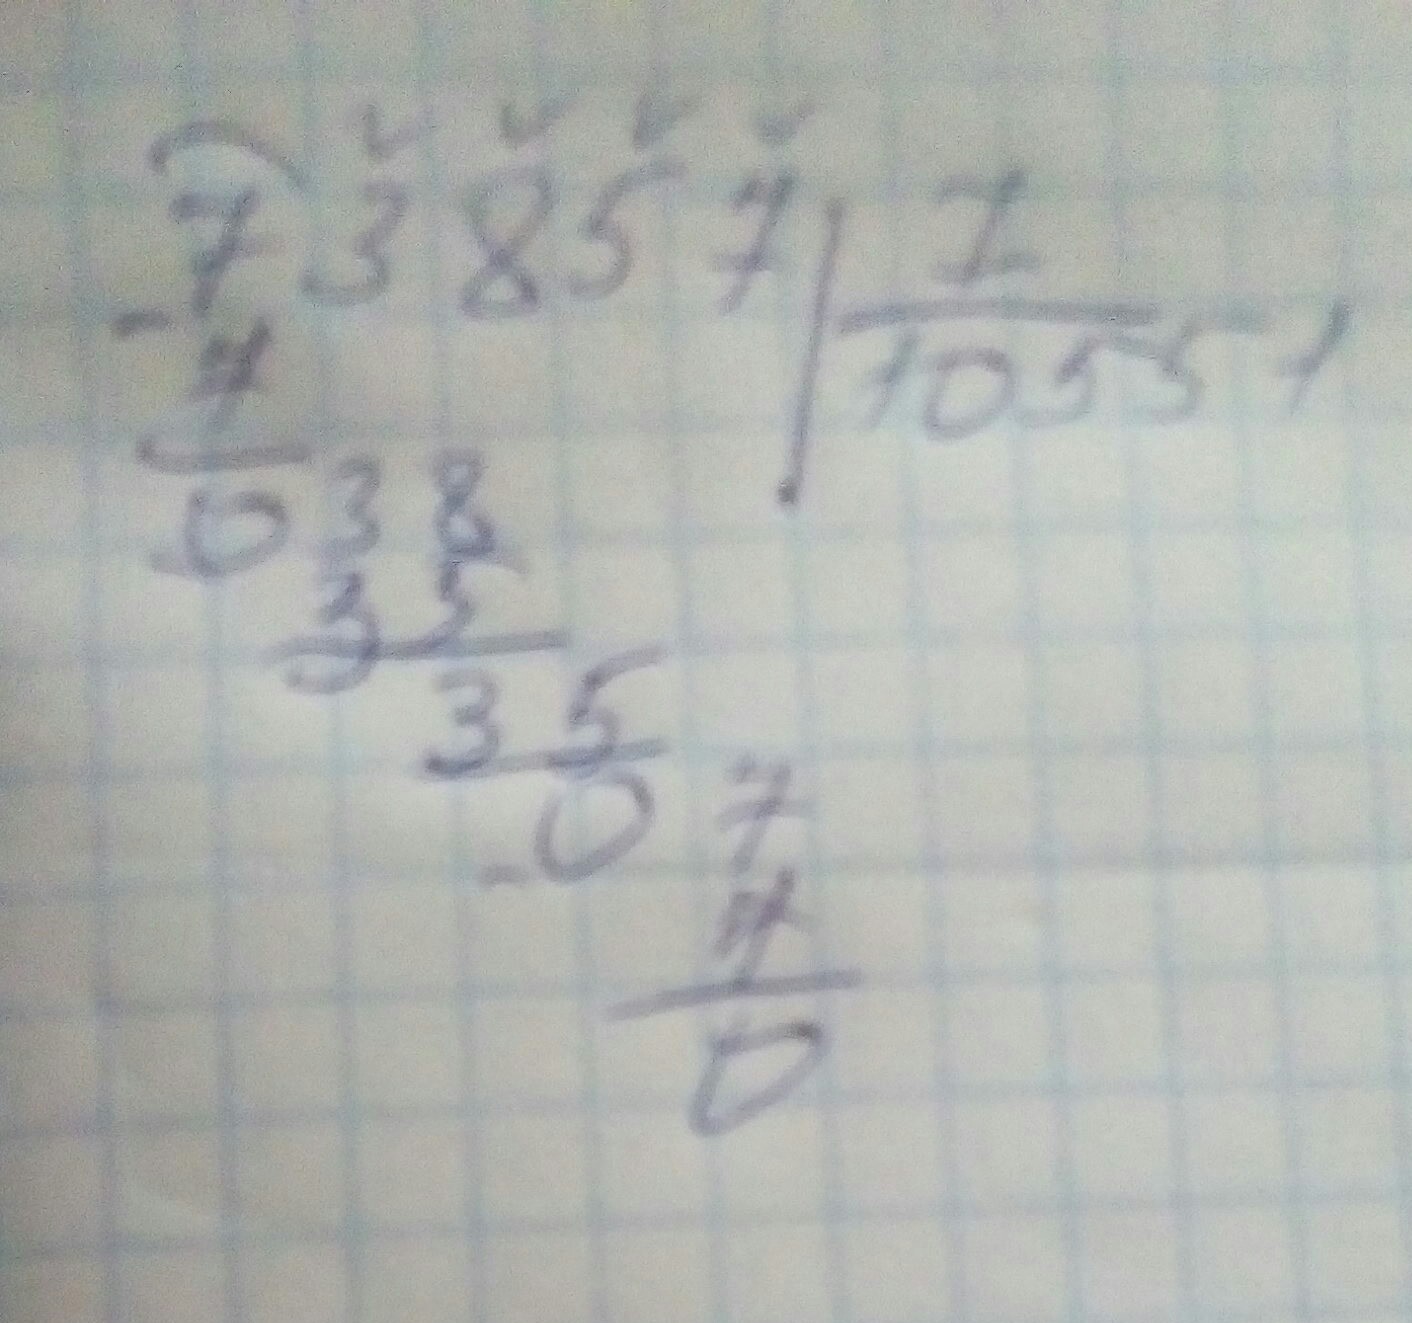 73857 7
- 7 10551
038
35
35
- 0 7
7
0